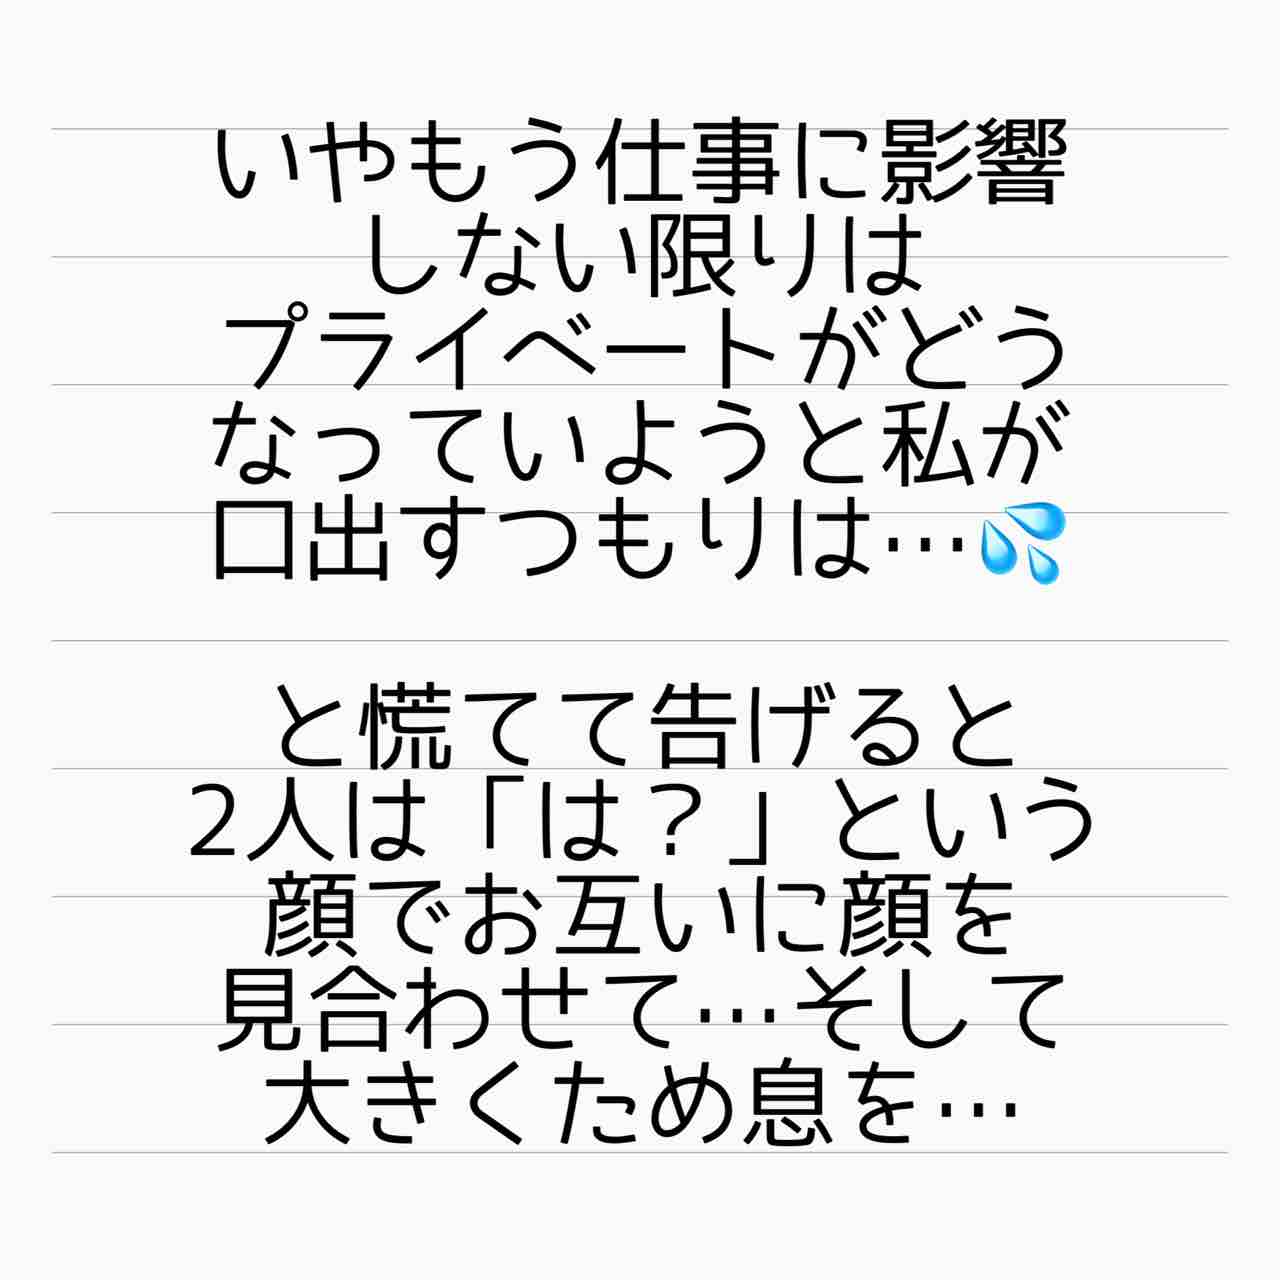 いやもう仕事に影響
しない限りは
プライベートがどう
なっていようと私が
口出すつもりは…💦
と慌てて告げると
2人は「は？」という
顔でお互いに顔を
見合わせて…そして
大きくため息を…